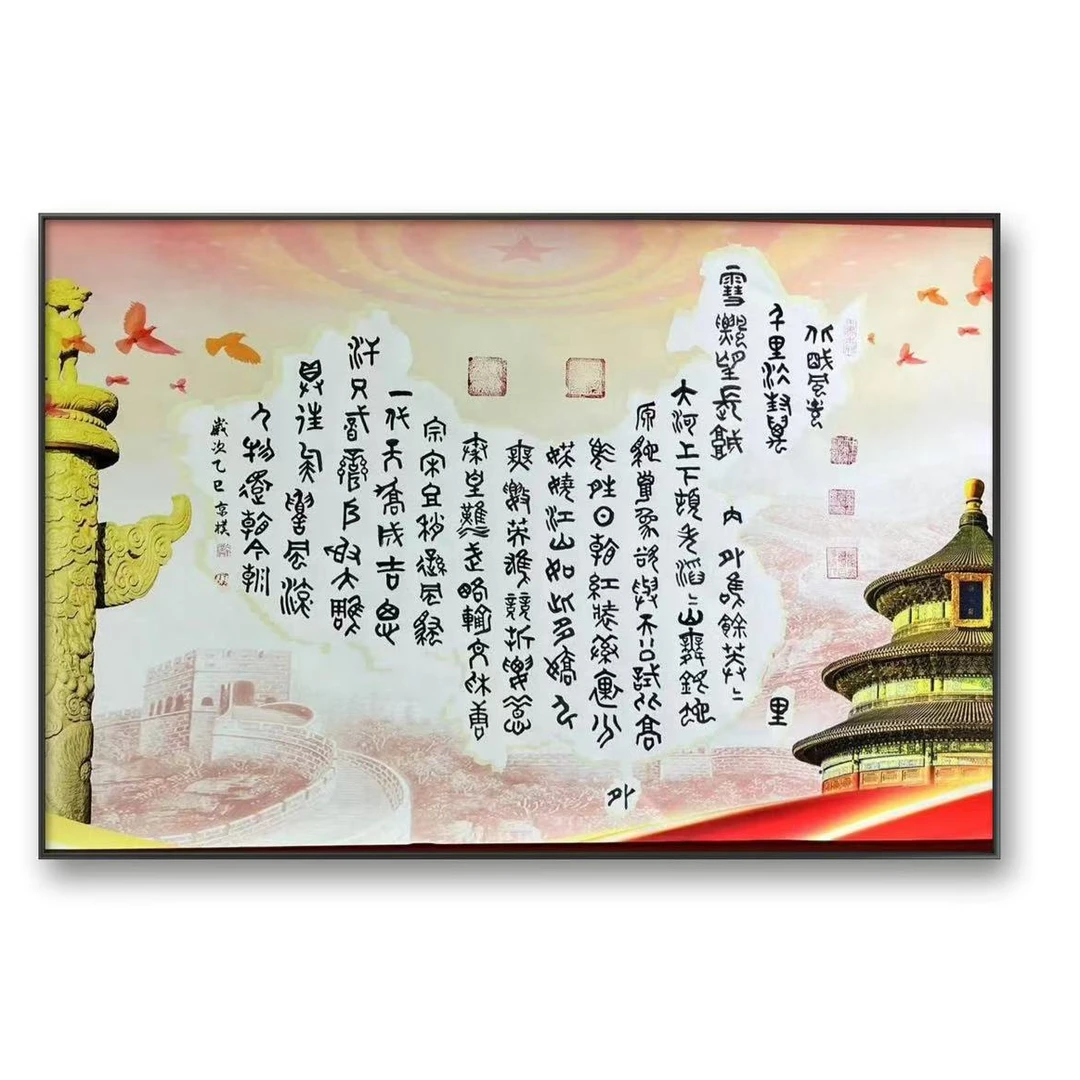 北國風光
千里冰封萬里
雪飄望長城內外惟餘莽〻
大河上下頓失滔〻山舞銀蛇
原馳蠟象欲與天公試比高
須晴日看紅裝素裹分外
妖嬈江山如此多嬌引
無數英雄競折腰惜
秦皇漢武略輸文采唐
宗宋祖稍遜風騷
一代天驕成吉思
汗只識彎弓射大雕
俱往矣數風流
人物還看今朝
歲次乙巳京樸